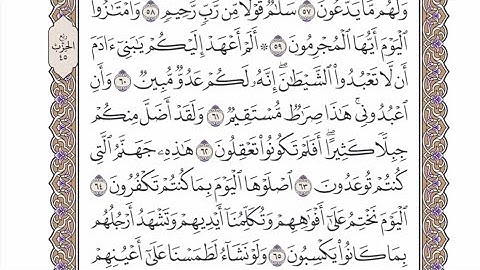 وَلَهُم مَّا يَدَّعُونَ ٥٧ سَلَٰمٌ قَوْلًا مِّن رَّبٍّ رَّحِيمٍ ٥٨ وَٱمْتَٰزُوا۟
ٱلْيَوْمَ أَيُّهَا ٱلْمُجْرِمُونَ ٥٩ ۞ أَلَمْ أَعْهَدْ إِلَيْكُمْ يَٰبَنِىٓ ءَادَمَ
أَن لَّا تَعْبُدُوا۟ ٱلشَّيْطَٰنَ ۖ إِنَّهُۥ لَكُمْ عَدُوٌّ مُّبِينٌ ٦٠ وَأَنِ
ٱعْبُدُونِى ۚ هَٰذَا صِرَٰطٌ مُّسْتَقِيمٌ ٦١ وَلَقَدْ أَضَلَّ مِنكُمْ
جِبِلًّا كَثِيرًا ۖ أَفَلَمْ تَكُونُوا۟ تَعْقِلُونَ ٦٢ هَٰذِهِۦ جَهَنَّمُ ٱلَّتِى
كُنتُمْ تُوعَدُونَ ٦٣ ٱصْلَوْهَا ٱلْيَوْمَ بِمَا كُنتُمْ تَكْفُرُونَ ٦٤
ٱلْيَوْمَ نَخْتِمُ عَلَىٰٓ أَفْوَٰهِهِمْ وَتُكَلِّمُنَآ أَيْدِيهِمْ وَتَشْهَدُ أَرْجُلُهُم
بِمَا كَانُوا۟ يَكْسِبُونَ ٦٥ وَلَوْ نَشَآءُ لَطَمَسْنَا عَلَىٰٓ أَعْيُنِهِمْ
ربع
الحزب
٤٥